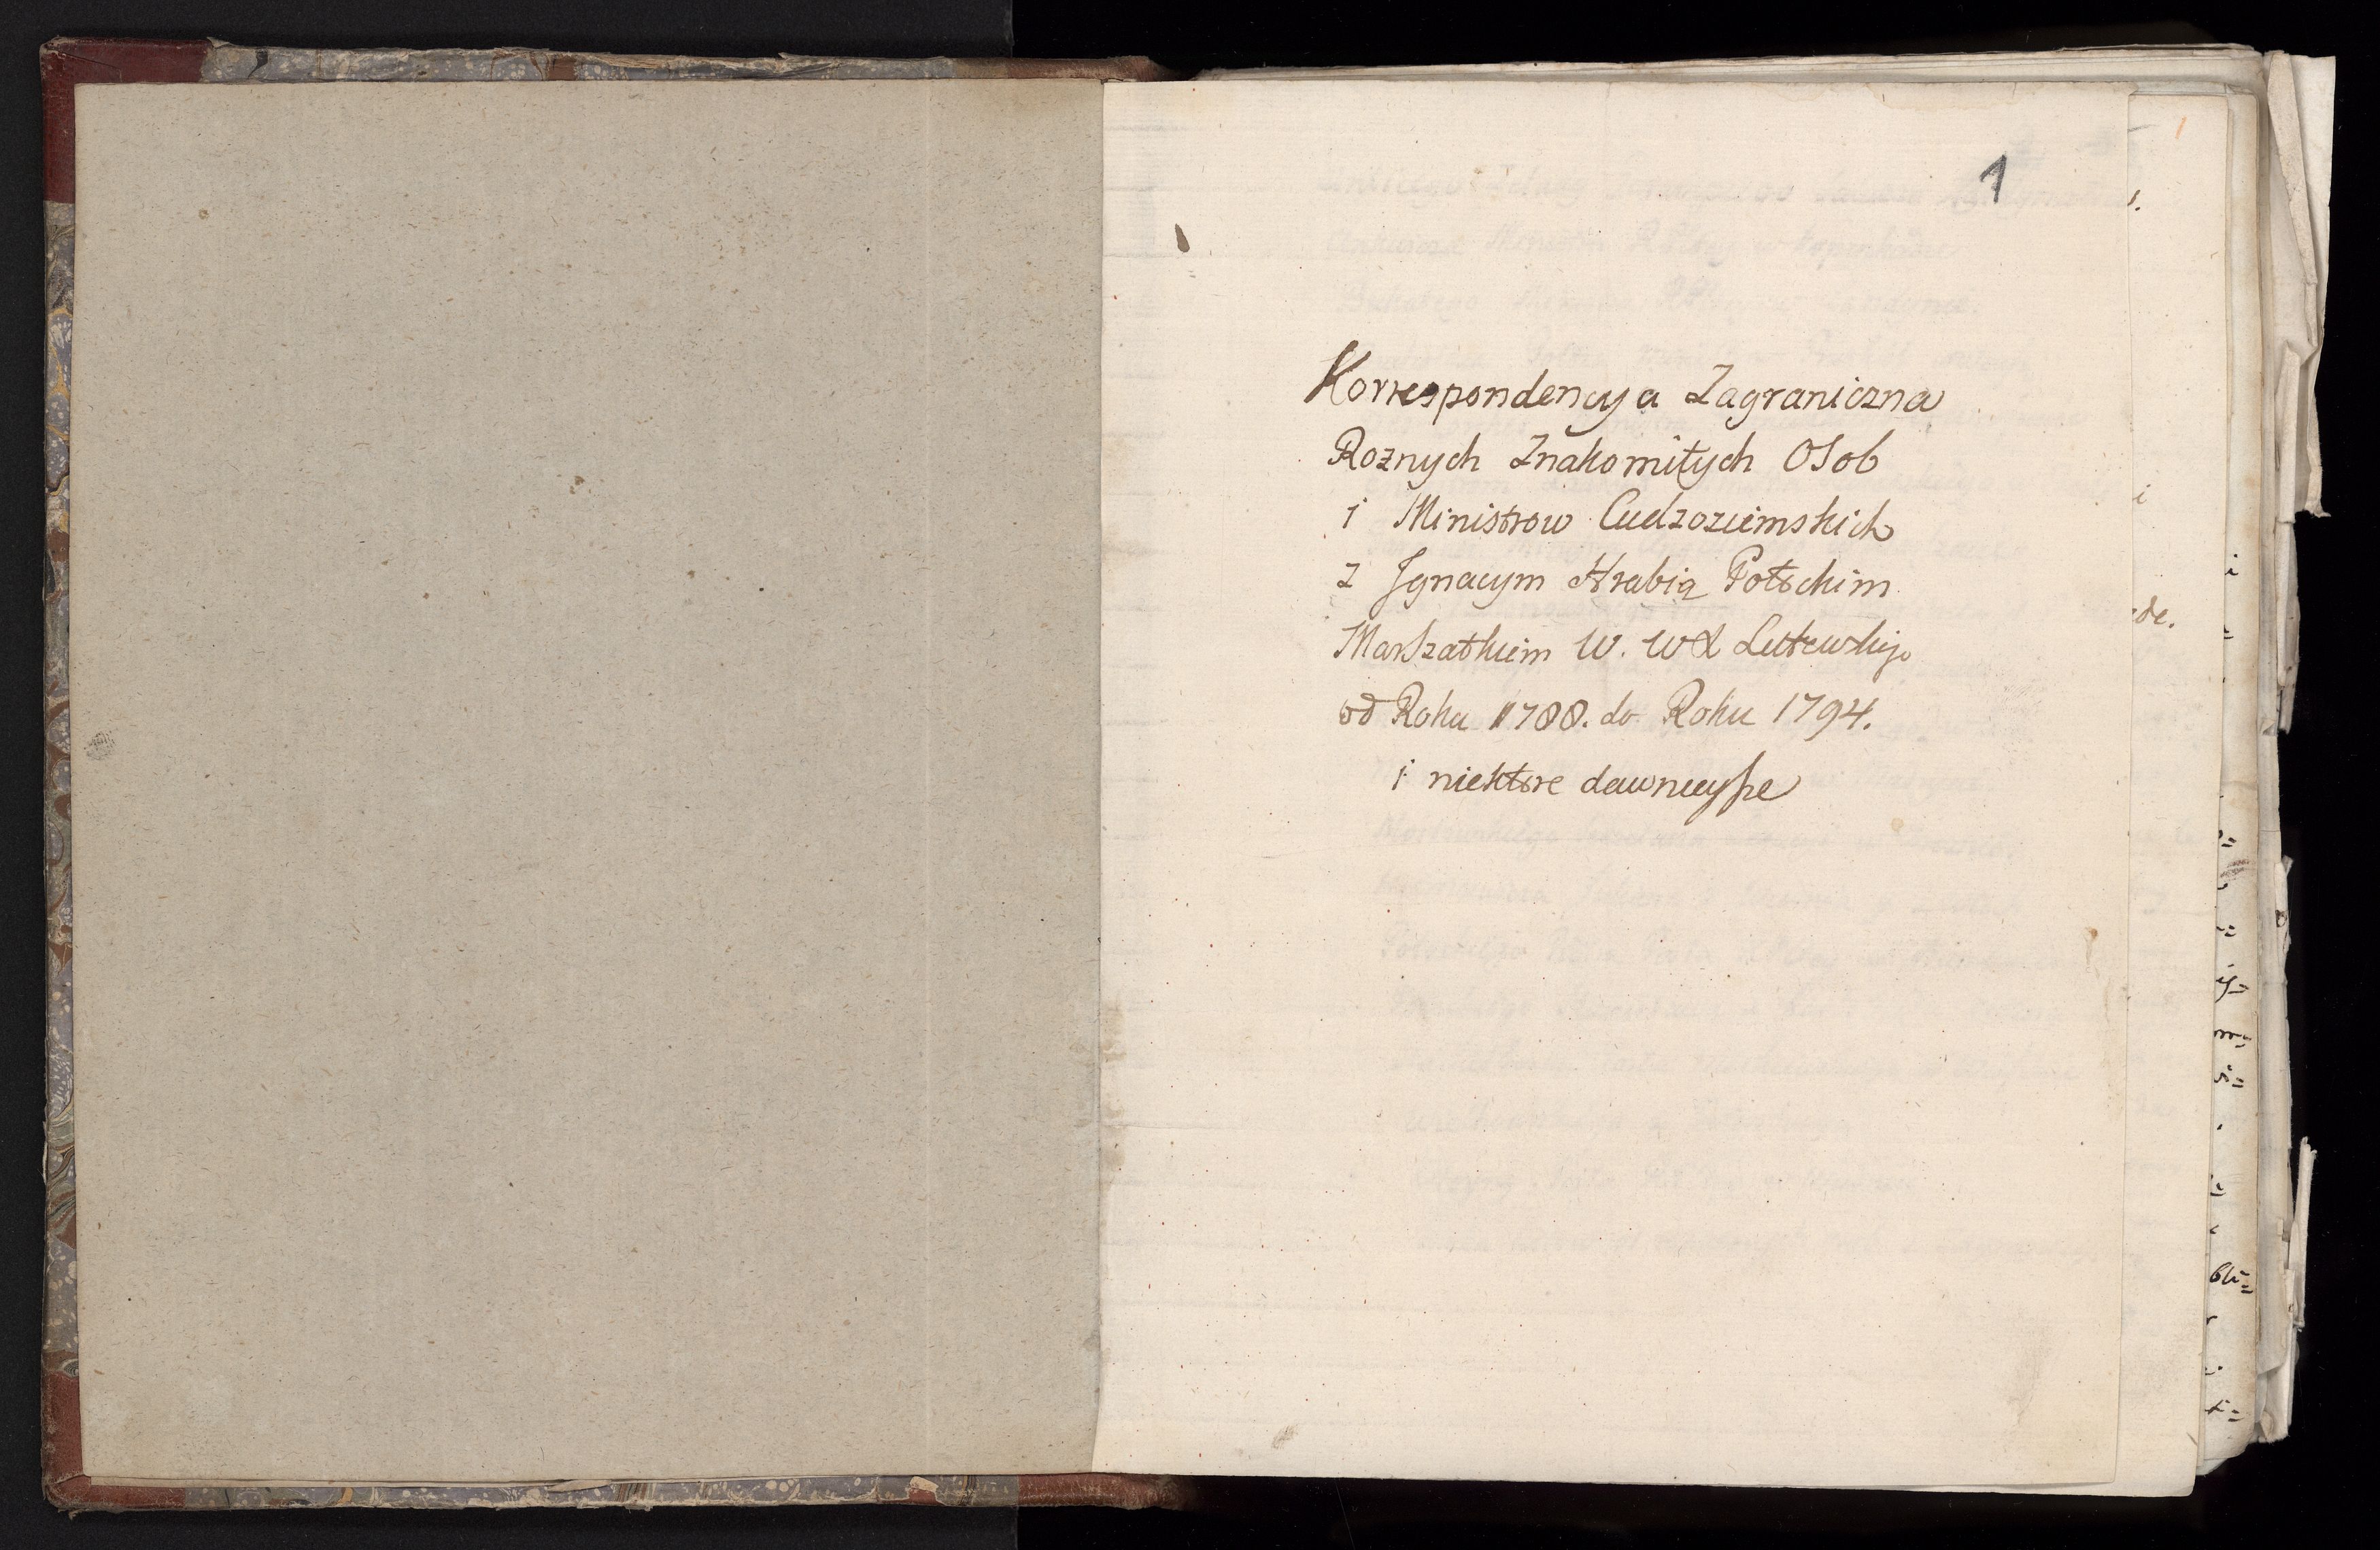 1
Korrespondencya Zagraniczna
Roznych Znakomitych Osob
i Ministrow Cudzoziemskich
z Jgnacym Hrabią Potockim
Marszałkiem W. WX Litewskigo
od Roku 1788. do Roku 1794.
i niektore dawnieysze